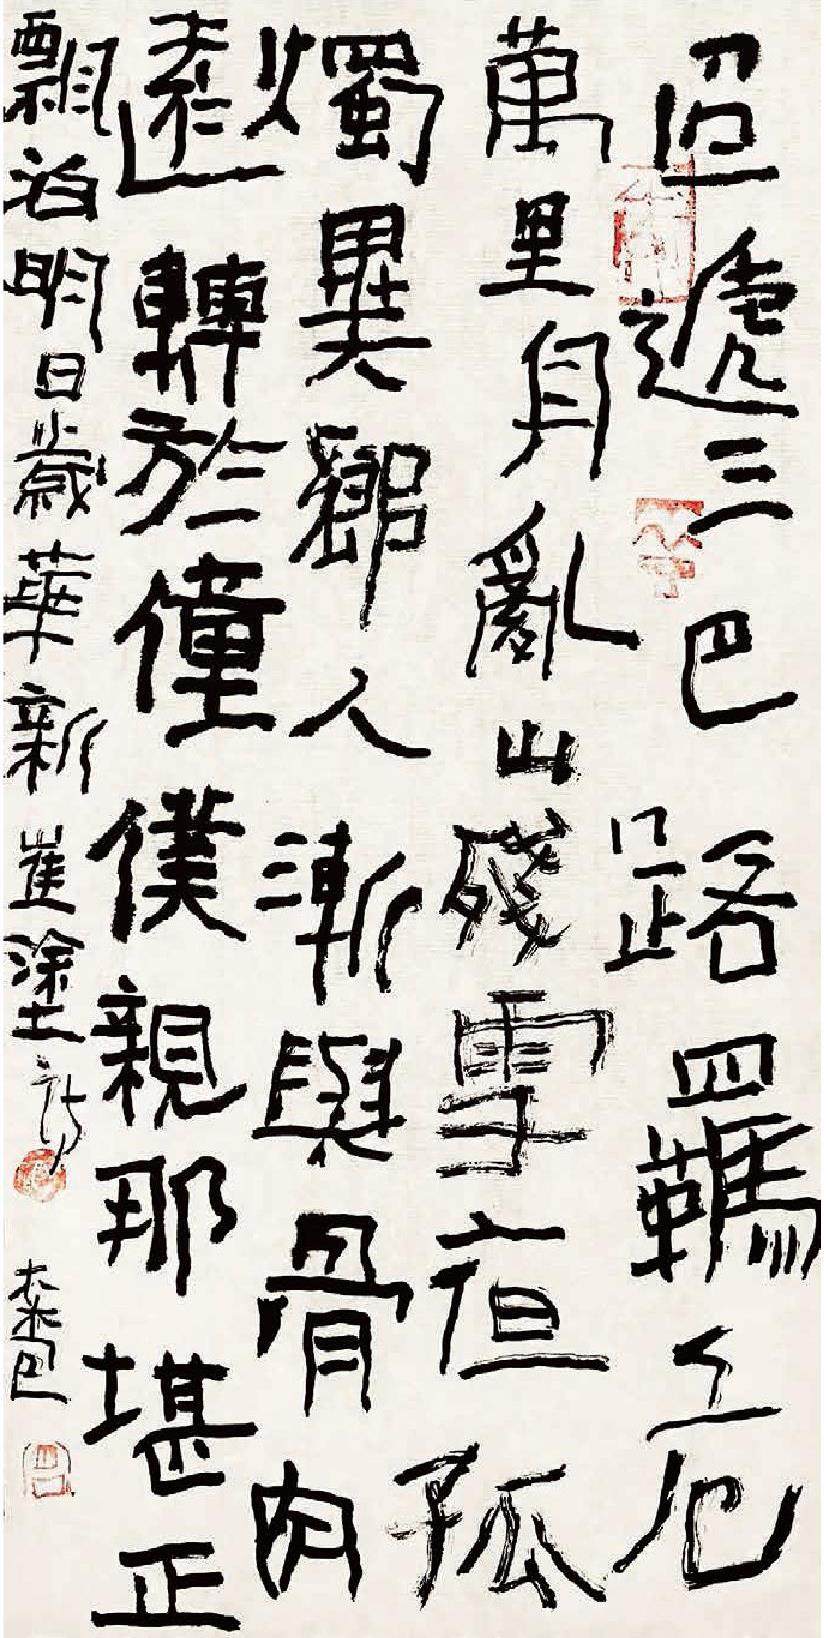 迢遞三巴路羈危
萬里身亂山殘雪夜孤
燭異鄉人漸與骨肉
遠轉於僮僕親那堪正
飄泊明日歲華新崔塗詩